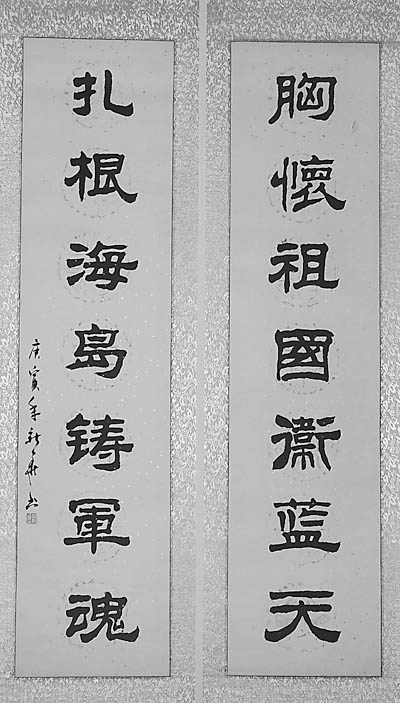 胸懷祖國衞蓝天
扎根海島铸軍魂
庚寅年新華书